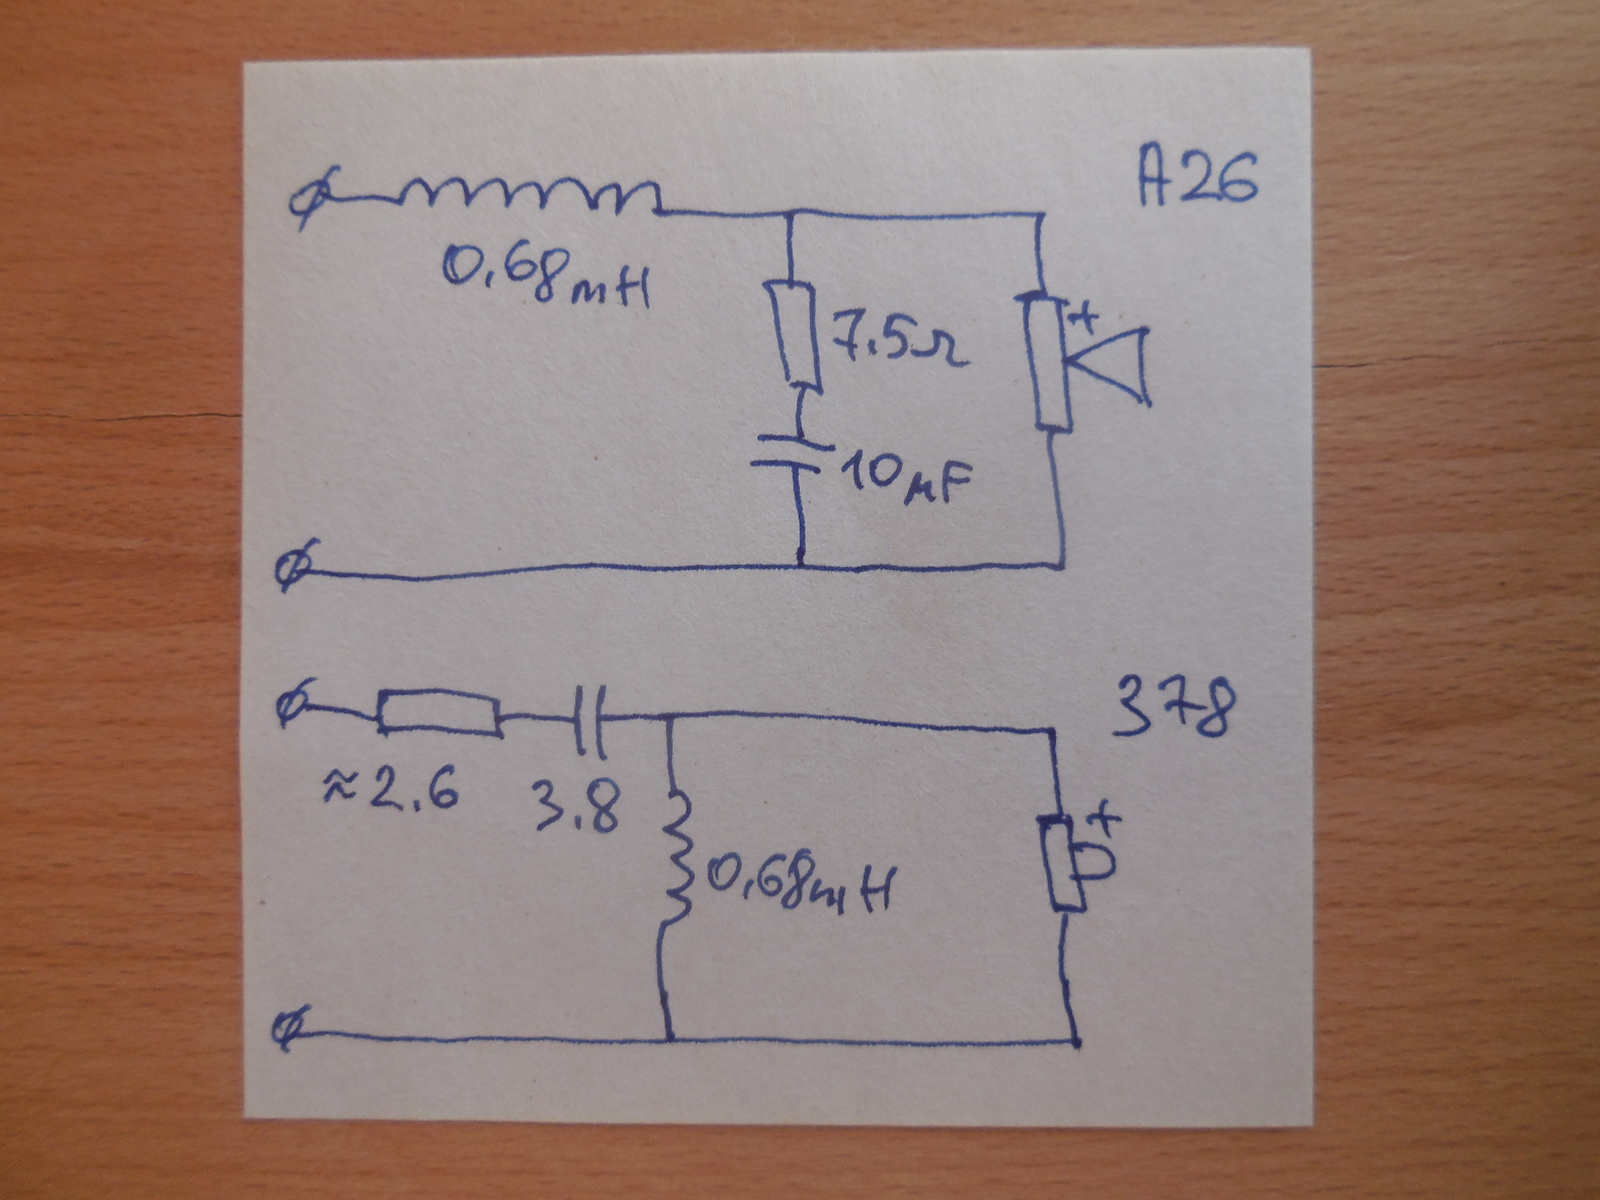 A26
0.68mH
7.5Ω
+
10μF
378
≈2.6
3.8
+
0.68mH